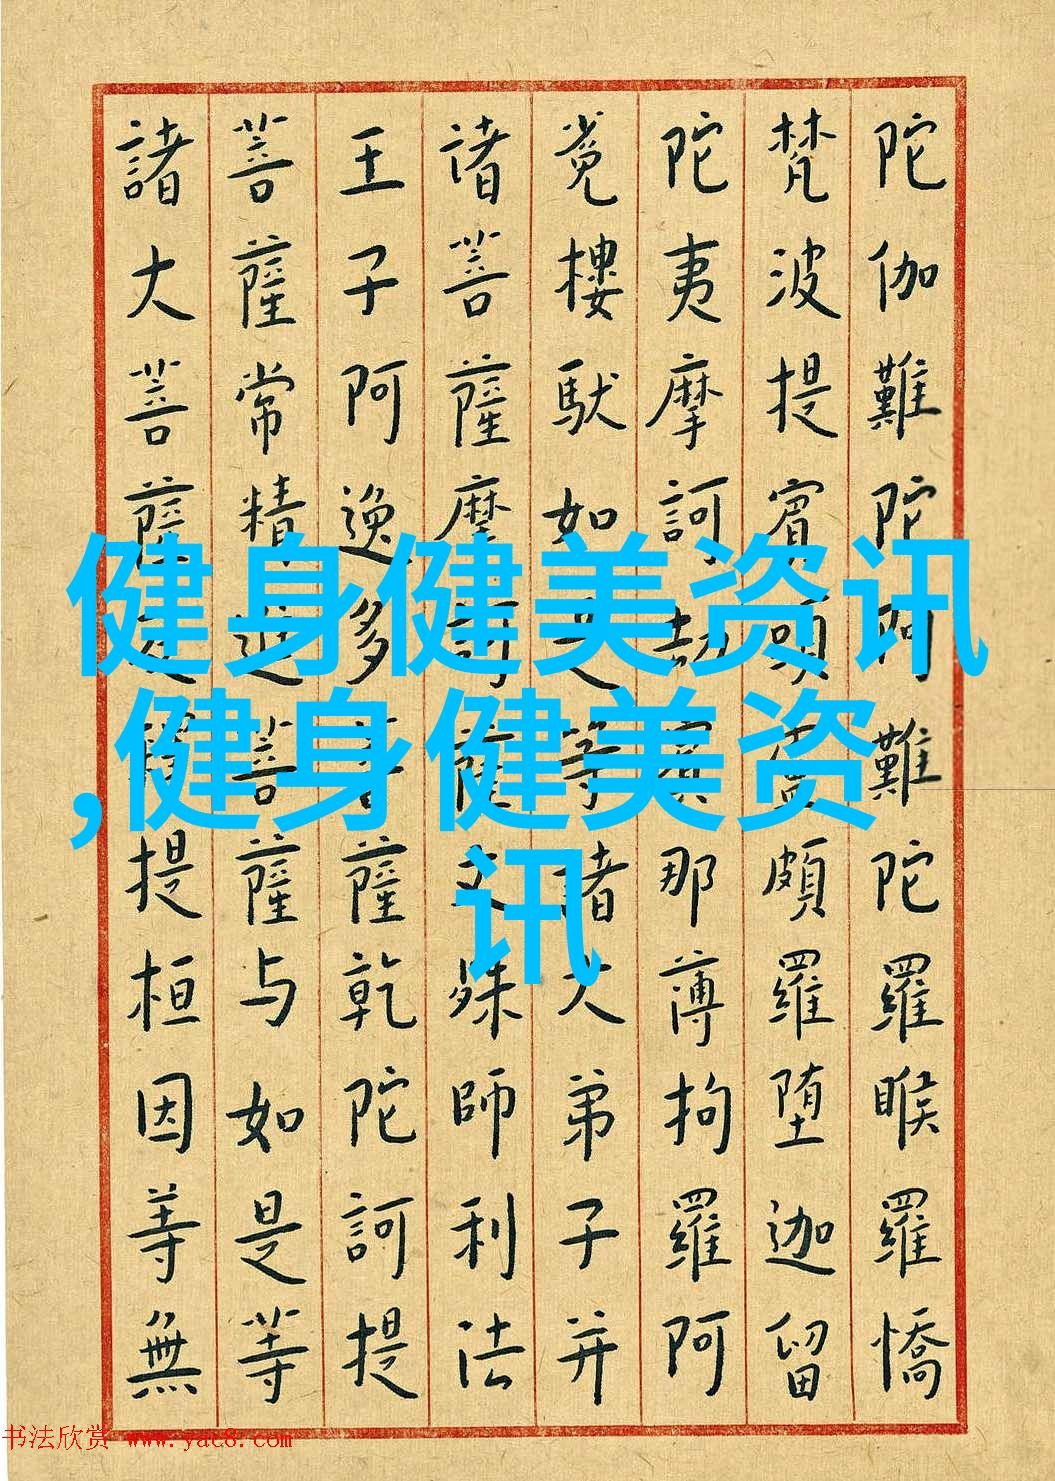 陀伽難陀阿難陀羅睺羅憍
梵波提賓頭盧頗羅堕迦留
陀夷摩訶劫賓那薄拘羅阿
樓馱如是等諸大弟子并
诸菩薩摩訶薩文殊師利法
王子阿逸多菩薩乾陀訶提
菩薩常精進菩薩与如是等
諸大菩薩及釋提桓因等無
健身健美资讯
,健身健美资
讯
书法欣赏 www.yac8.com